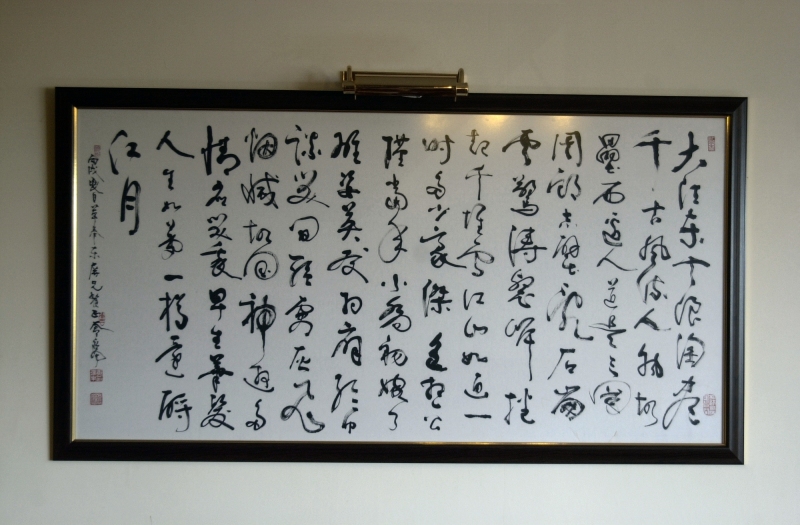 大江东去浪淘尽
千古风流人物故
垒西边人道是三国
周郎赤壁乱石崩
云惊涛裂岸捲
起千堆雪江山如画一
时多少豪杰遥想公
瑾当年小乔初嫁了
雄姿英发羽扇纶巾
谈笑间强虏灰飞
烟灭故国神游多
情应笑我早生华发
人生如梦一樽还酹
江月
丙戌